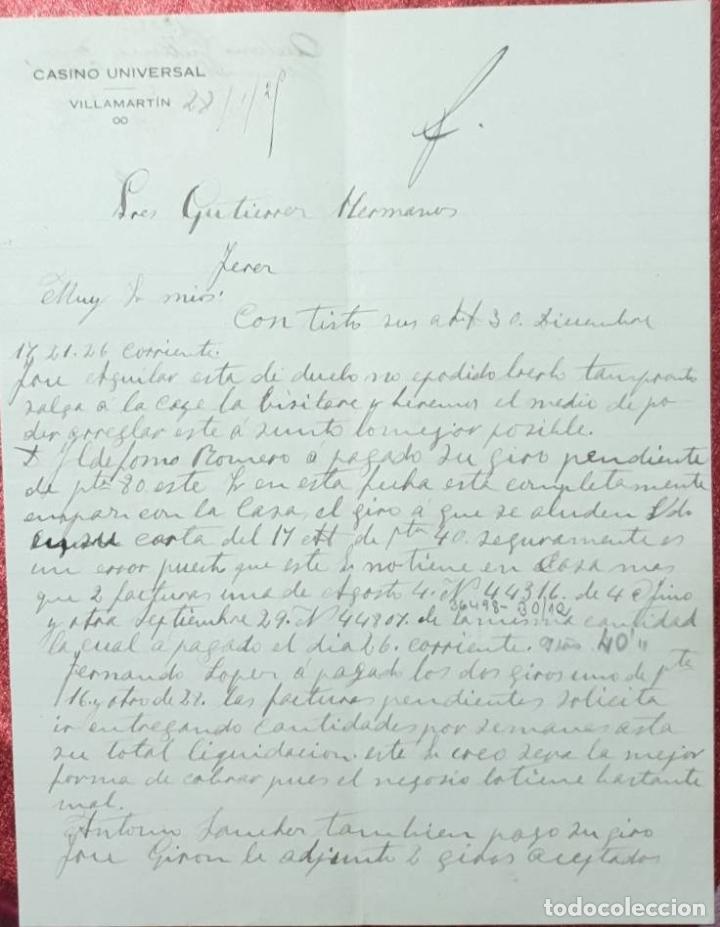 CASINO UNIVERSAL
VILLAMARTÍN 28/1/
Sres Gutierrez Hermanos
Jerez
Muy Sr mios:
Con tisto sus att 30. Diciembre
17 21. 26 corriente.
Jose Aguilar esta de duelo no epodido berlo tampronto
salga á la caye la bisitare y beremos el medio de po-
der arreglar este á sunto lo mejor posible.
D Ildefonso Romero a pagado su giro pendiente
de pta 80 este Sr en esta fecha está completamente
enpari con la Casa, el giro á que se aluden Vds
en su carta del 17 att de pta 40. seguramente es
un error puesto que este Sr no tiene en Casa mas
que 2 facturas una de Agosto 4. Nº 44316. de 4 @ fino
36498- 30/12
y otra septiembre 29. Nº 44807. de la misma cantidad
la cual á pagado el dia 26. corriente. 40"
Fernando Lopez á pagado los dos giros uno de pta
16. y otro de 28. las facturas pendientes solicita
ir entregando cantidades por semanas asta
su total liquidacion. este Sr creo sera la mejor
forma de cobrar pues el negosio lo tiene bastante
mal.
Antonio Sanchez tambien pago su giro
Jose Giron le adjunto 2 giros aceptados
todocoleccion
todocoleccion.net